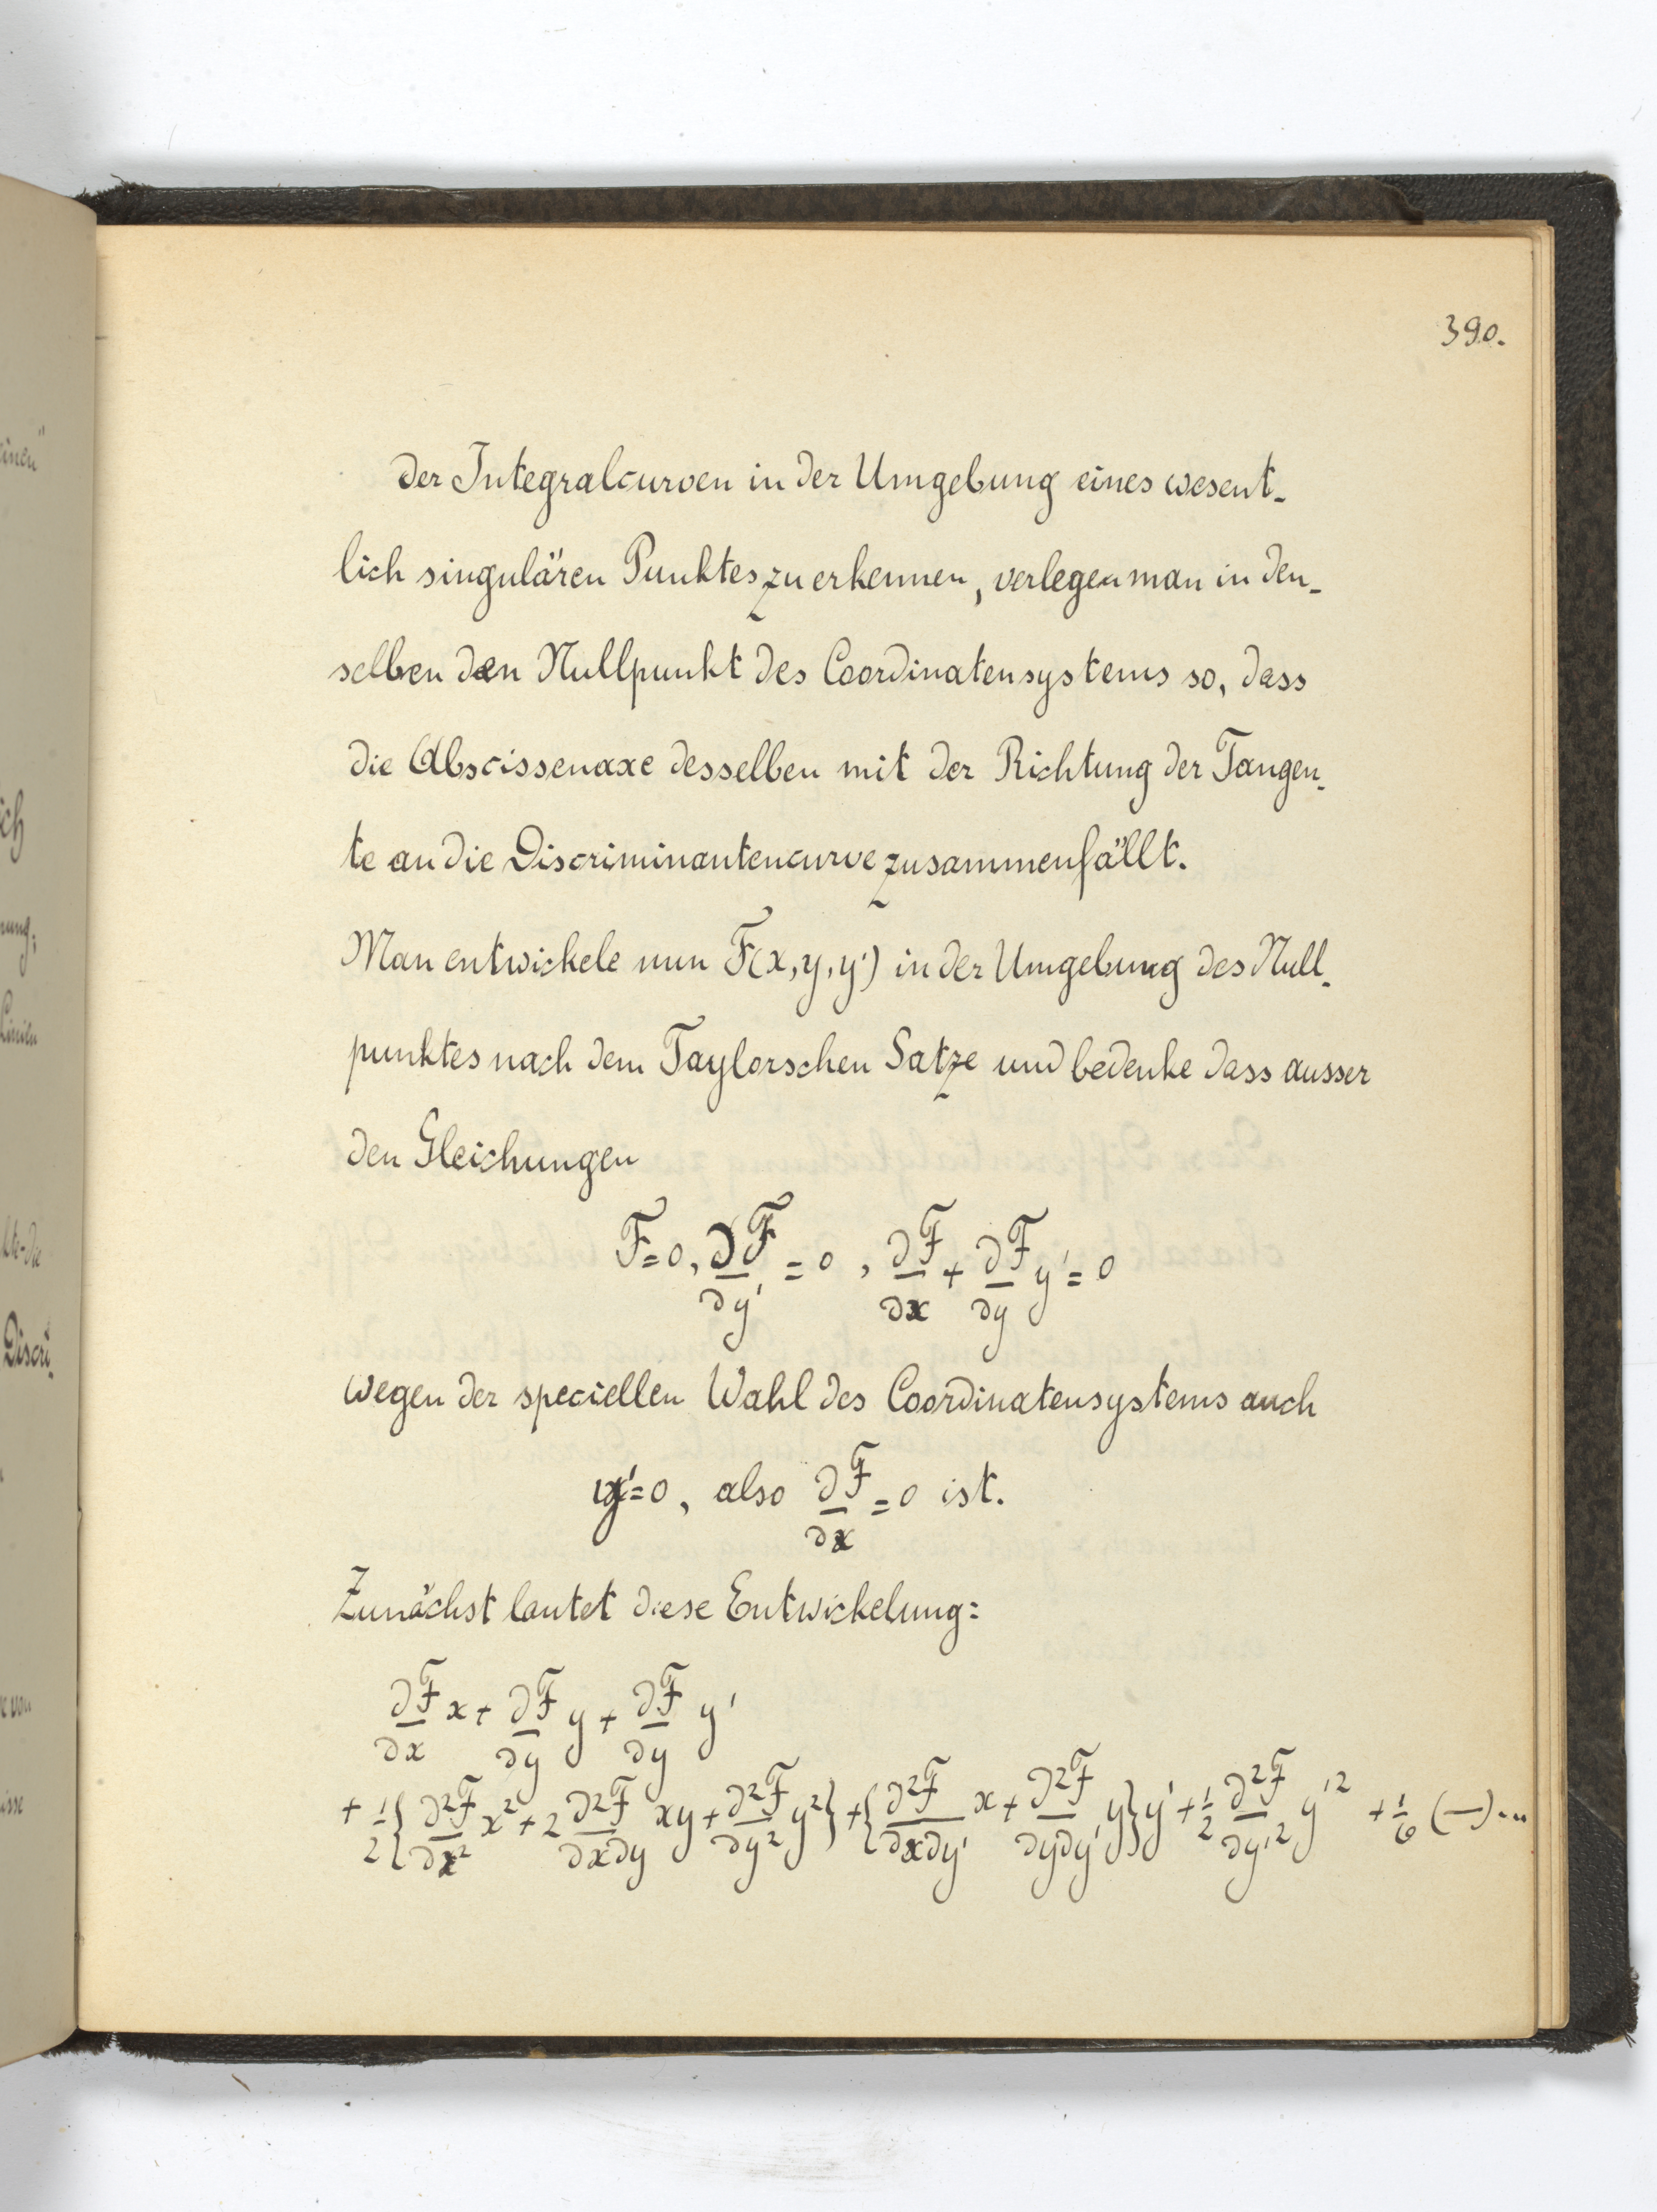 390.
der Integralcurven in der Umgebung eines wesent-
lich singulären Punktes zu erkennen, verlegen man in den-
selben den Nullpunkt des Coordinatensystems so, dass
die Abscissenaxe desselben mit der Richtung der Tangen-
te an die Discriminantencurve zusammenfällt.
Man entwickele nun F(x, y, y') in der Umgebung des Null-
punktes nach dem Taylorschen Satze und bedenke dass ausser
den Gleichungen
F=0, ∂F/∂y' = 0, ∂F/∂x + ∂F/∂y y' = 0
wegen der speciellen Wahl des Coordinatensystems auch
y'=0, also ∂F/∂x = 0 ist.
Zunächst lautet diese Entwickelung:
∂F/∂x x + ∂F/∂y y + ∂F/∂y y'
+ 1/2 {∂²F/∂x² x² + 2 ∂²F/∂x∂y xy + ∂²F/∂y² y²} + {∂²F/∂x∂y' x + ∂²F/∂y∂y' y} y' + 1/2 ∂²F/∂y'² y'² + 1/6 (—)...